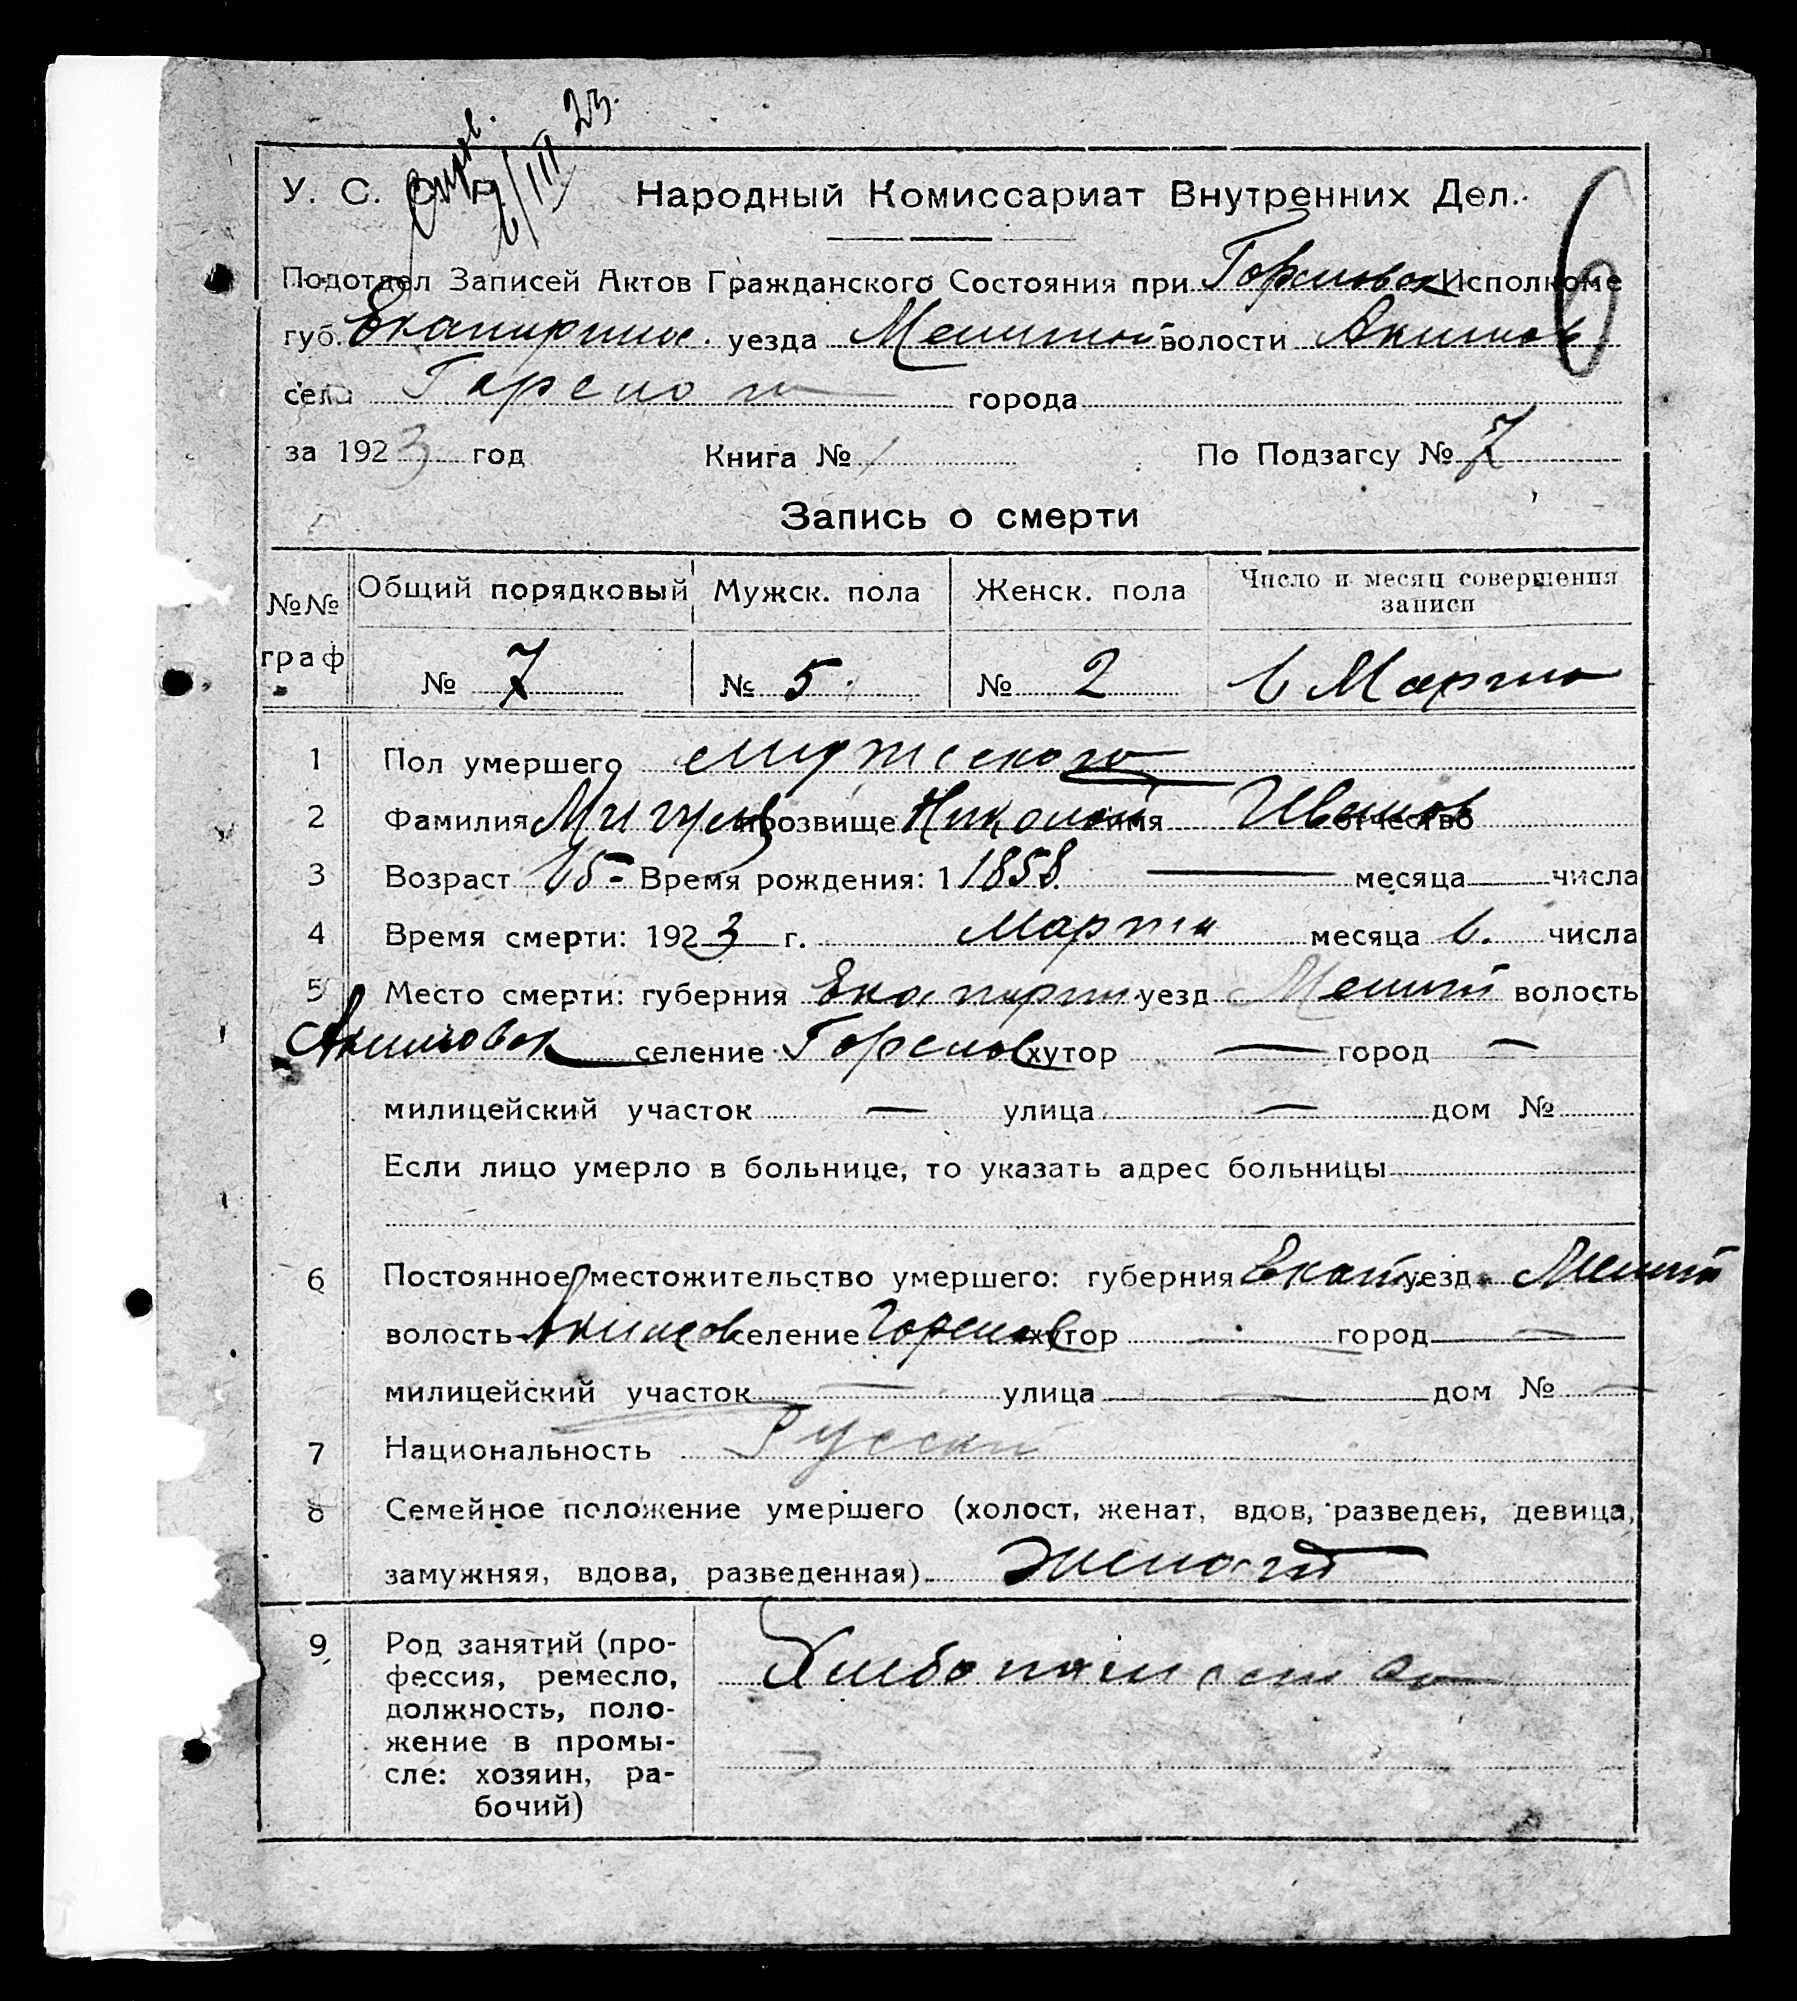 6/III 23.
У. С. С. Р. Народный Комиссариат Внутренних Дел.
6
Подотдел Записей Актов Гражданского Состояния при Горсновск Исполкоме
губ. Екатерин. уезда Мелитоп волости Акимов
села за 1923 год Книга № 1 По Подзагсу № 7
города
Запись о смерти
№№ граф Общий порядковый Мужск. пола Женск. пола Число и месяц совершения записи
№ 7 № 5 № 2 6 Марта
1 Пол умершего мужского
2 Фамилия прозвище Николай имя Иванов отчество
3 Возраст 65 Время рождения: 1 1858 — месяца числа
4 Время смерти: 1923 г. Марта месяца 6. числа
5 Место смерти: губерния уезд Мелит волость
Акимовск селение хутор — город —
милицейский участок — улица — дом №
Если лицо умерло в больнице, то указать адрес больницы
6 Постоянное местожительство умершего: губерния Екат уезд Мелит
волость Акимов селение хутор город —
милицейский участок — улица — дом № —
7 Национальность Русский
8 Семейное положение умершего (холост, женат, вдов, разведен, девица,
замужняя, вдова, разведенная) женат
9 Род занятий (про-
фессия, ремесло,
должность, поло-
жение в промы-
сле: хозяин, ра-
бочий)
Хлебопашество